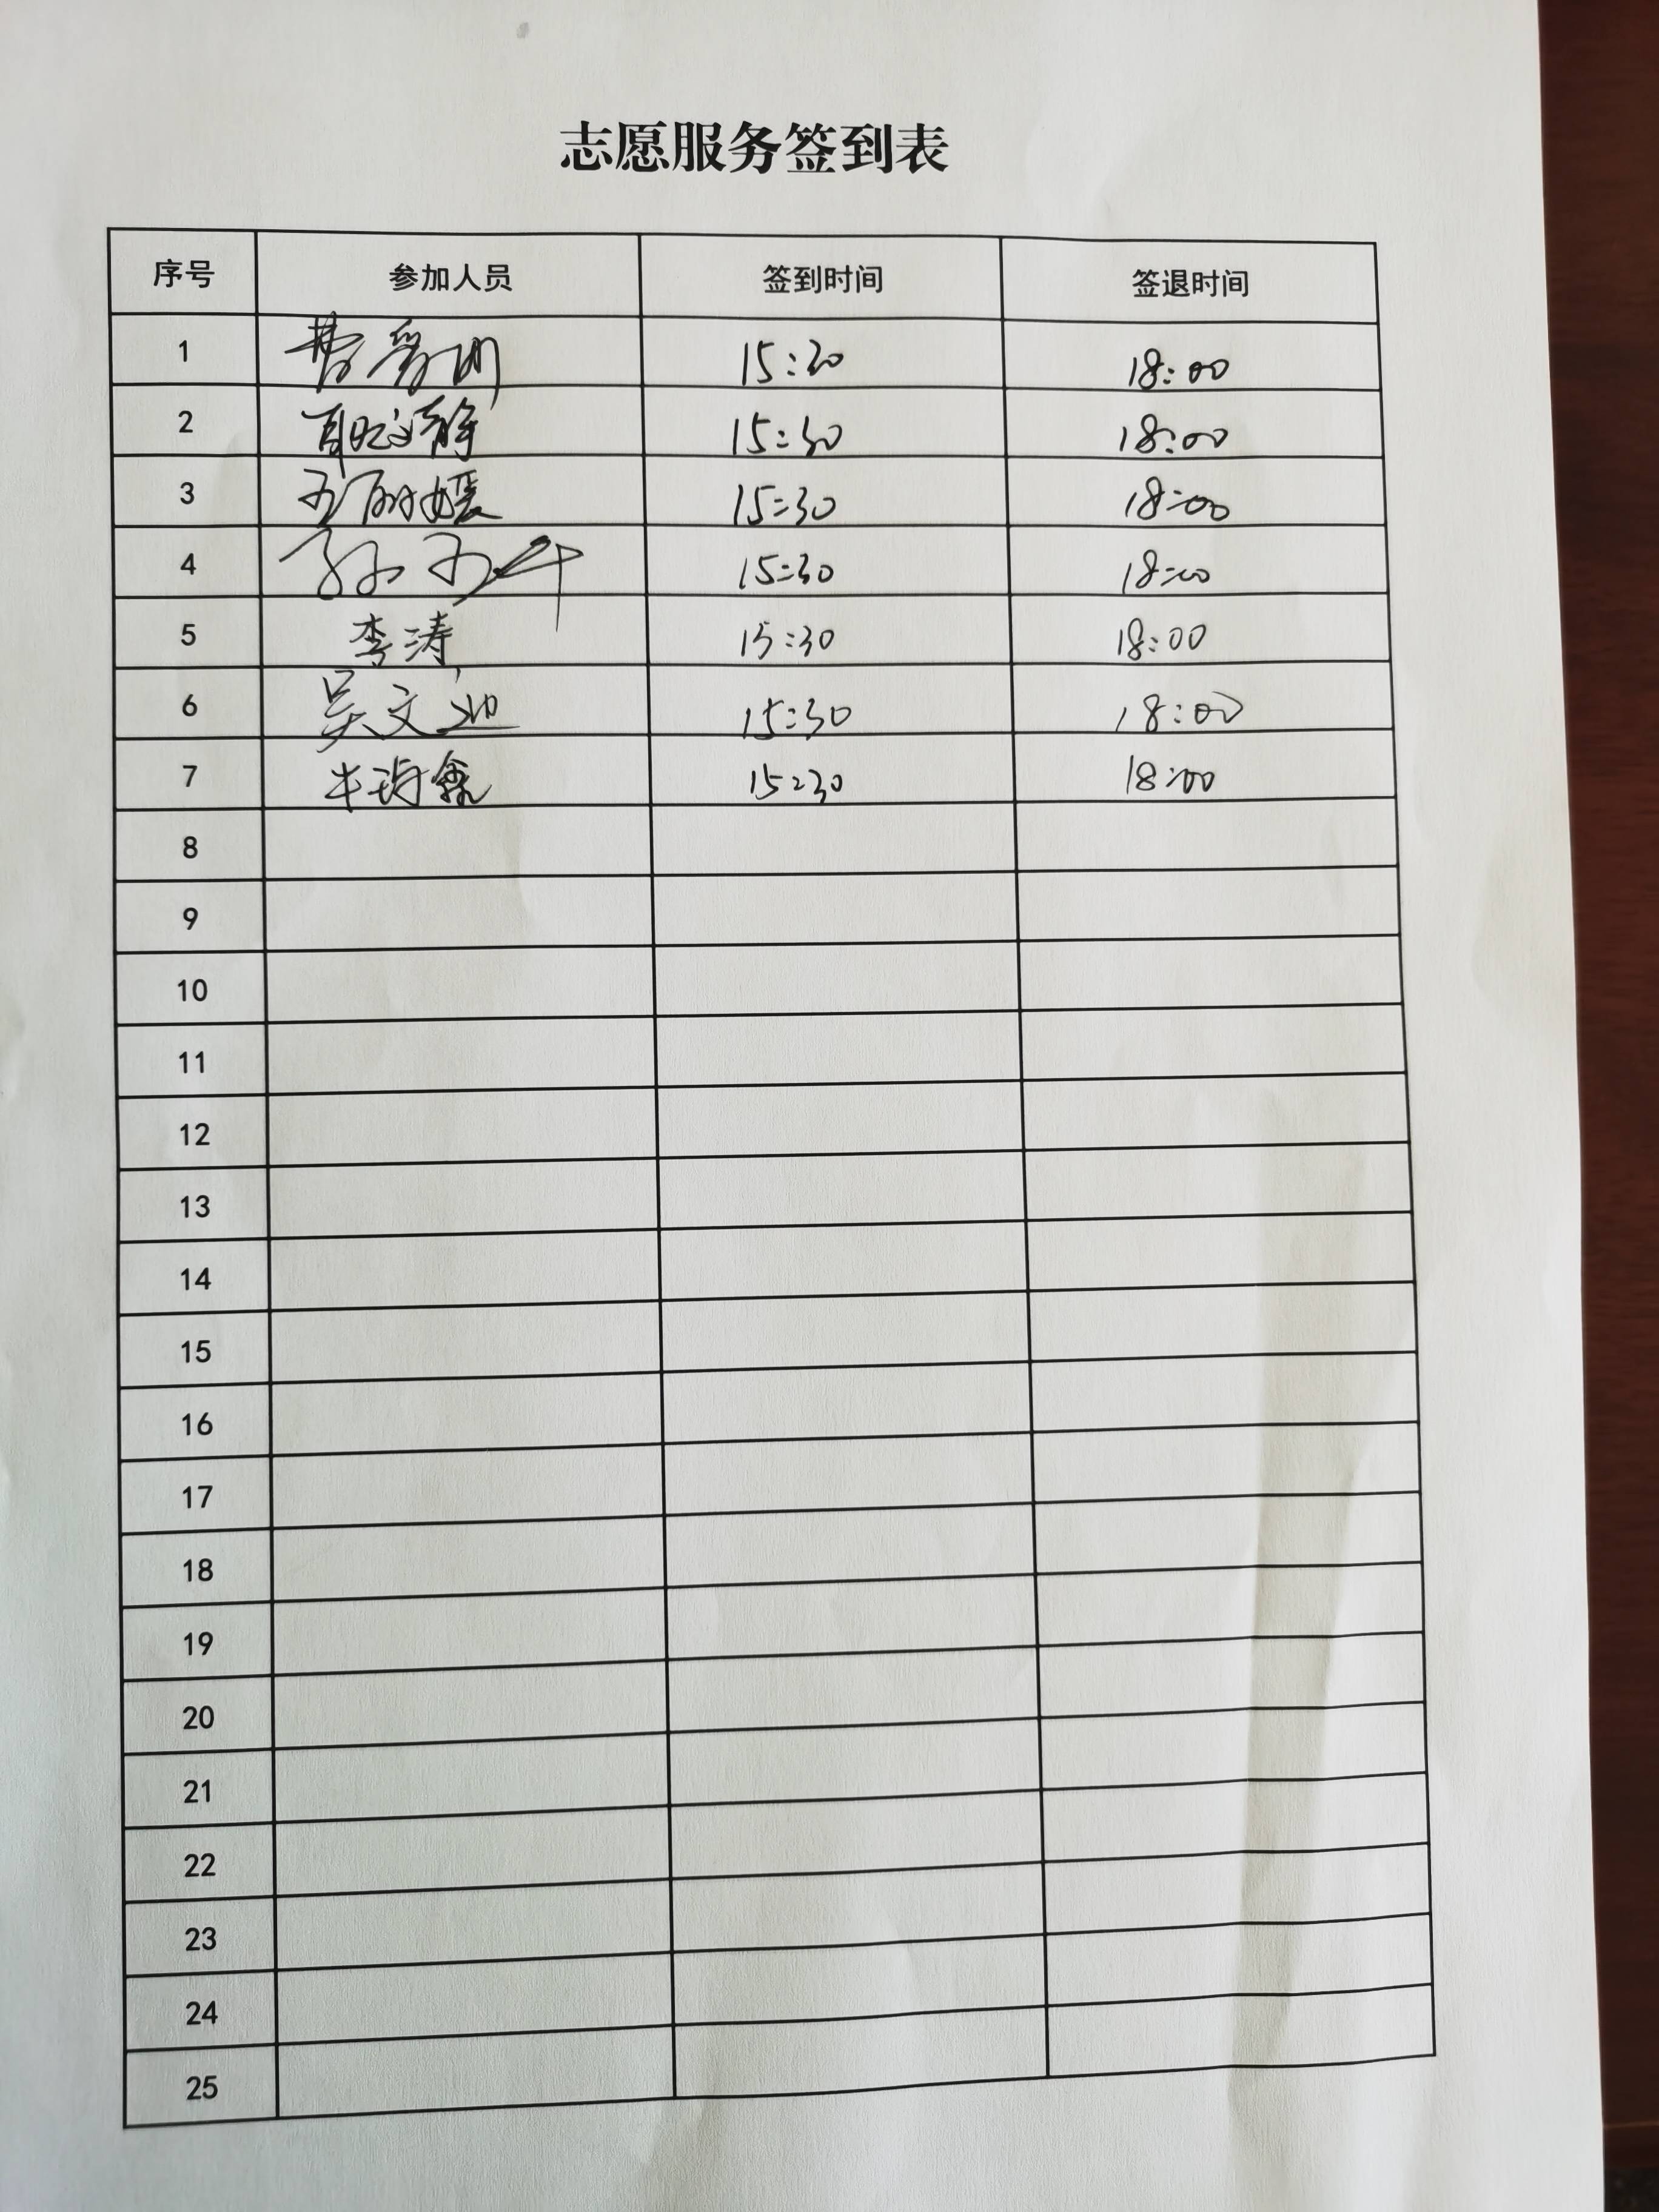 志愿服务签到表
序号 参加人员 签到时间 签退时间
1 15:20 18:00
2 15:30 18:00
3 15:30 18:00
4 孙 15:30 18:00
5 李涛 15:30 18:00
6 吴文 15:30 18:00
7 牛 15:30 18:00
8
9
10
11
12
13
14
15
16
17
18
19
20
21
22
23
24
25